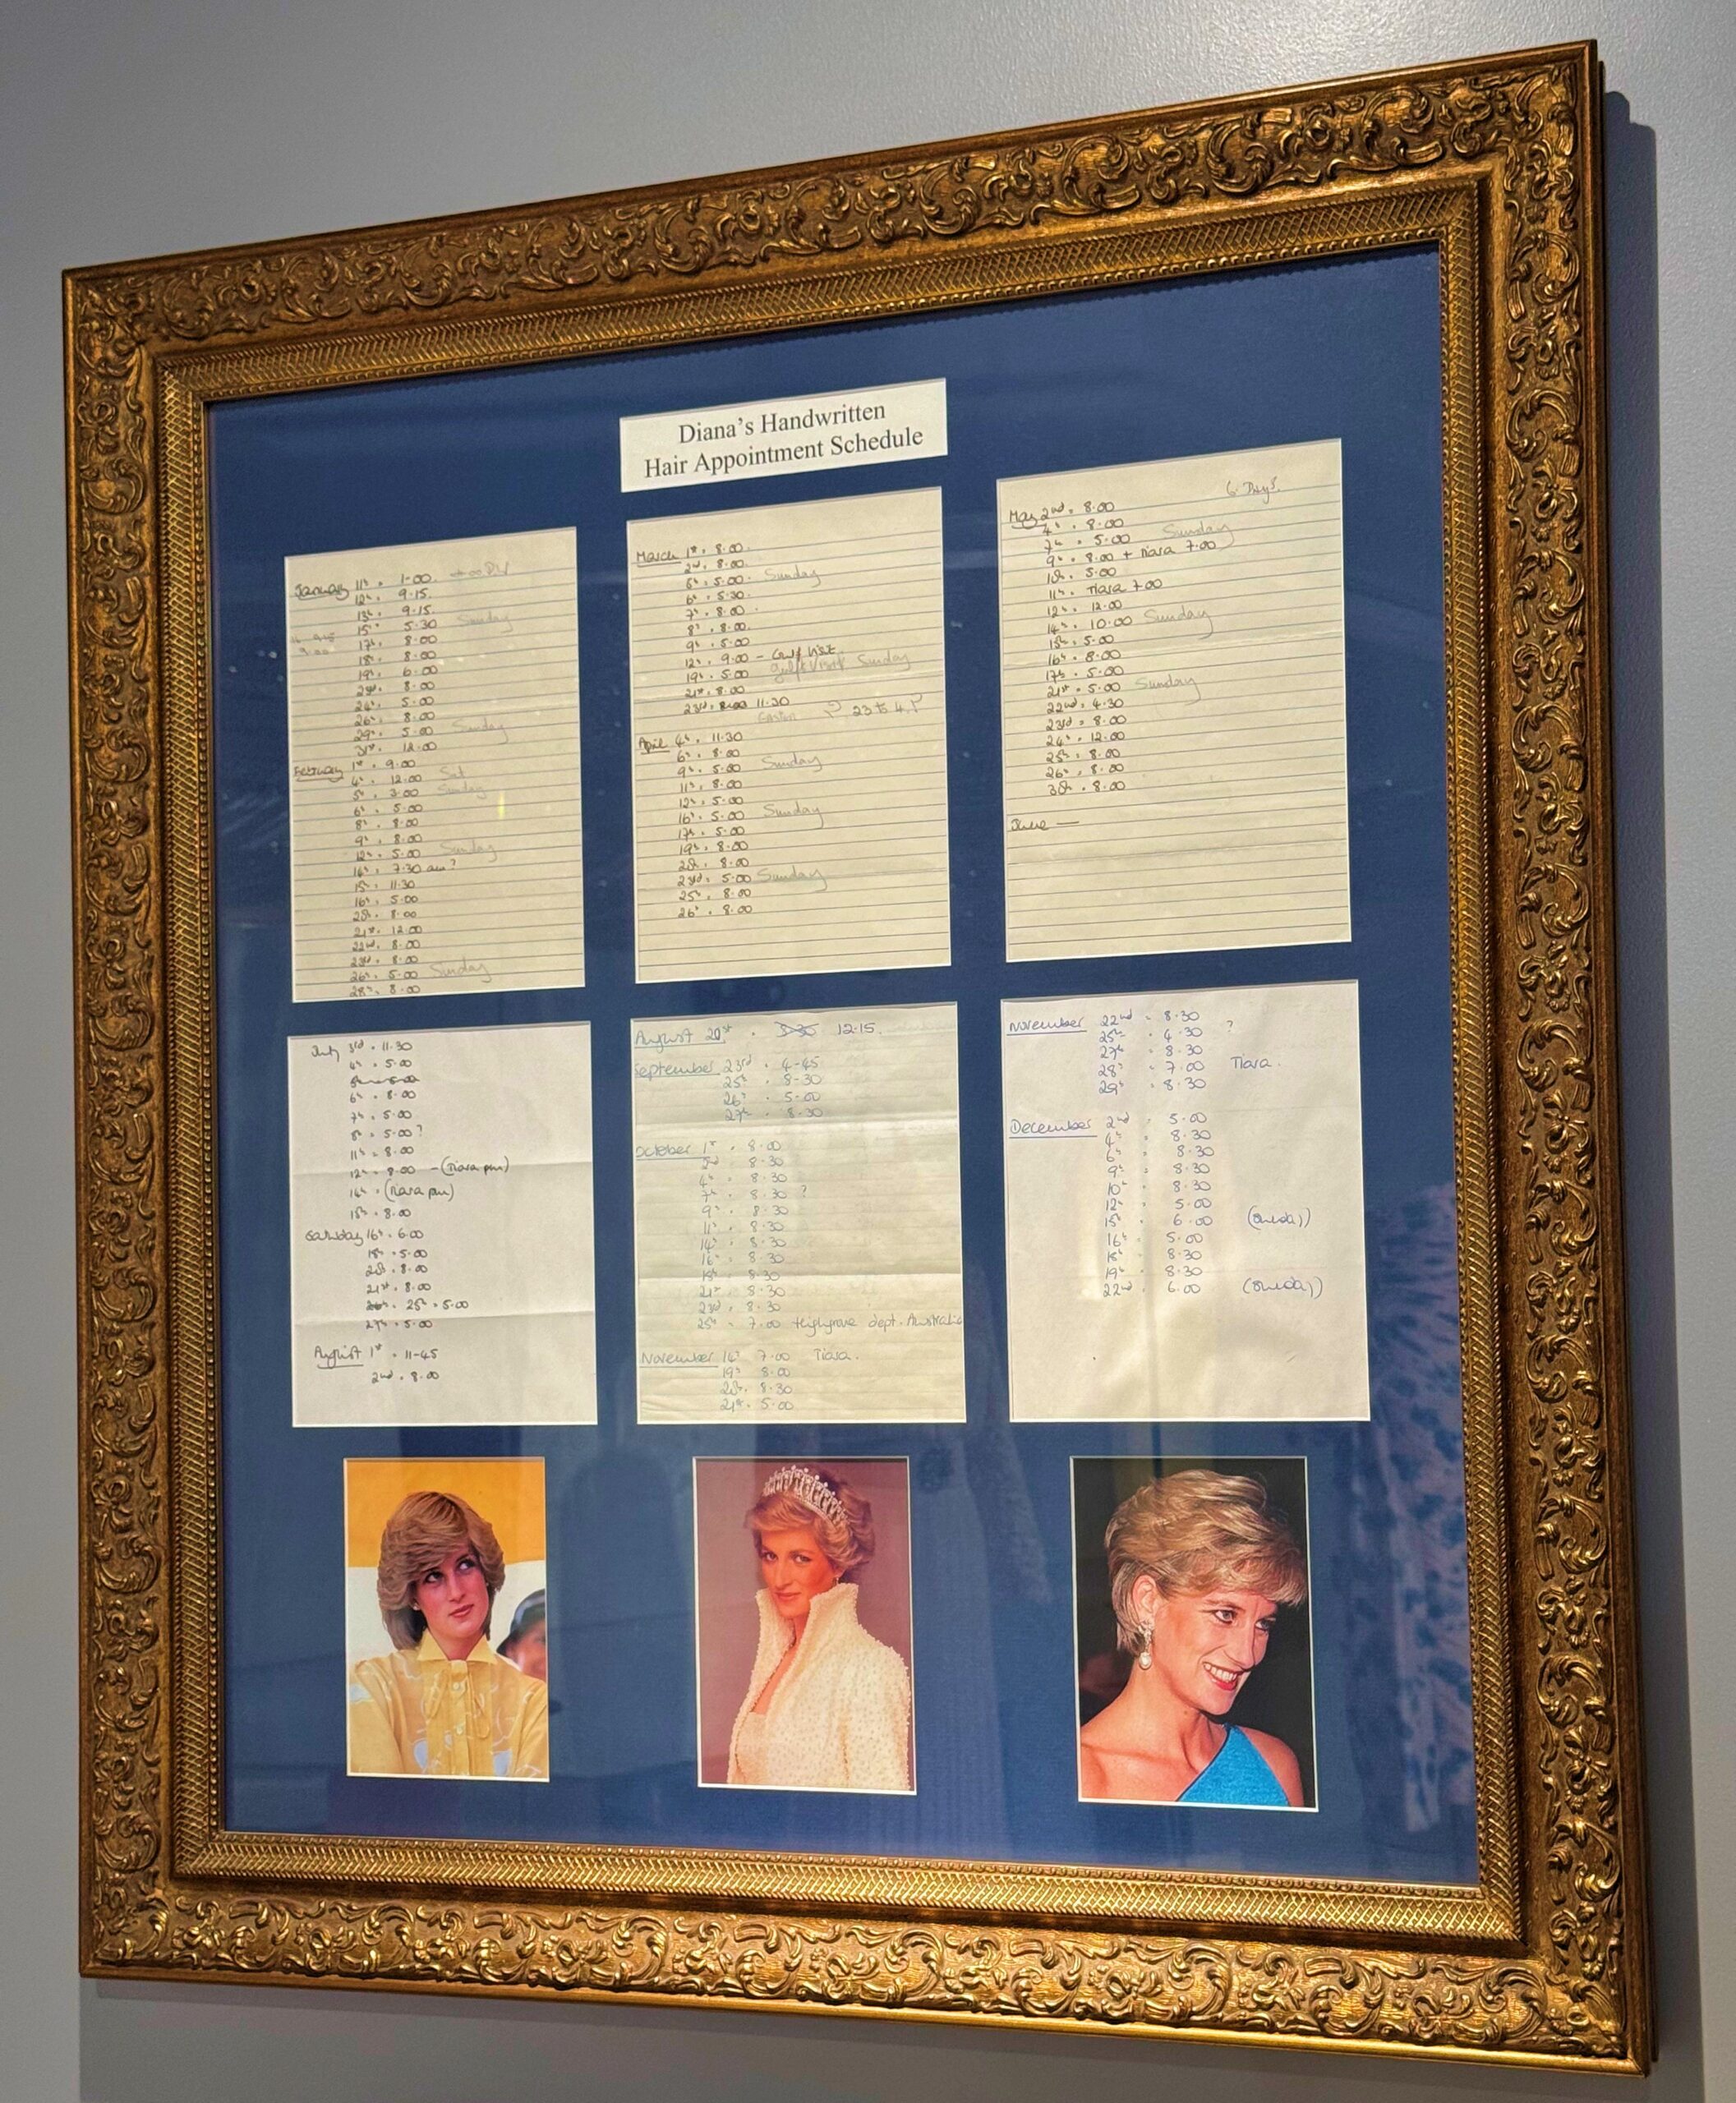 Diana's Handwritten
Hair Appointment Schedule
January 11th. 1.00.
12th. 9.15.
13th. 9.15.
15th 5.30 Sunday
17th. 8.00
18th. 8.00
19th. 6.00
23rd. 8.00
24th. 5.00
26th. 8.00
29th. 5.00 Sunday
31st. 12.00
February 1st. 9.00
4th. 12.00 Sat
5th. 7.00 Sunday
6th. 5.00
8th. 8.00
9th. 8.00
12th. 5.00 Sunday
14th. 7.30 am?
15th. 11.30
16th. 5.00
20th. 8.00
21st. 12.00
22nd. 8.00
23rd. 8.00
26th. 5.00 Sunday
28th. 8.00
March 1st. 8.00.
2nd. 8.00.
5th. 5.00. Sunday
6th. 5.30
7th. 8.00
8th. 8.00.
9th. 5.00
12th. 9.00 - Gulf Visit.
Gulf Visit
19th. 5.00 Sunday
21st. 8.00
23rd. 8.00 11.30
? 23 to 4.?
April 4th. 11.30
6th. 8.00
9th. 5.00 Sunday
11th. 8.00
12th. 5.00
16th. 5.00 Sunday
17th. 5.00
19th. 8.00
20th. 8.00
23rd. 5.00 Sunday
25th. 8.00
26th. 8.00
6 Days.
May 2nd. 8.00
4th. 8.00
7th. 5.00 Sunday
9th. 8.00 + Tiara 7.00
10th. 5.00
11th. Tiara 7.00
12th. 12.00
14th. 10.00 Sunday
15th. 5.00
16th. 8.00
17th. 5.00
21st. 5.00 Sunday
22nd. 4.30
23rd. 8.00
24th. 12.00
25th. 8.00
26th. 8.00
30th. 8.00
June —
July 3rd. 11.30
4th. 5.00
5th. 5.00
6th. 8.00
7th. 5.00
8th. 5.00?
11th. 8.00
12th. 8.00 - (Tiara pm)
14th. (Tiara pm)
15th. 8.00
Saturday 16th. 6.00
18th. 5.00
20th. 8.00
21st. 8.00
25th. 5.00
27th. 5.00
August 1st. 11-45
2nd. 8.00
August 20st. 8.30 12.15.
September 23rd. 4-45
25th. 8-30
26th. 5-00
27th. 8.30
October 1st. 8.00
2nd. 8.30
4th. 8.30
7th. 8.30 ?
9th. 8.30
11th. 8.30
14th. 8.30
16th. 8.30
18th. 8.30
21st. 8.30
23rd. 8.30
25th. 7.00 Highgrove dept. Australia
November 14th 7.00 Tiara.
19th 8.00
20th. 8.30
21st. 5.00
November 22nd. 8.30
25th. 4.30 ?
27th. 8.30
28th. 7.00 Tiara.
29th. 8.30
December 2nd. 5.00
4th. 8.30
6th. 8.30
9th. 8.30
10th. 8.30
12th. 5.00
15th. 6.00 (Sunday)
16th. 5.00
18th. 8.30
19th. 8.30
22nd. 6.00 (Sunday)